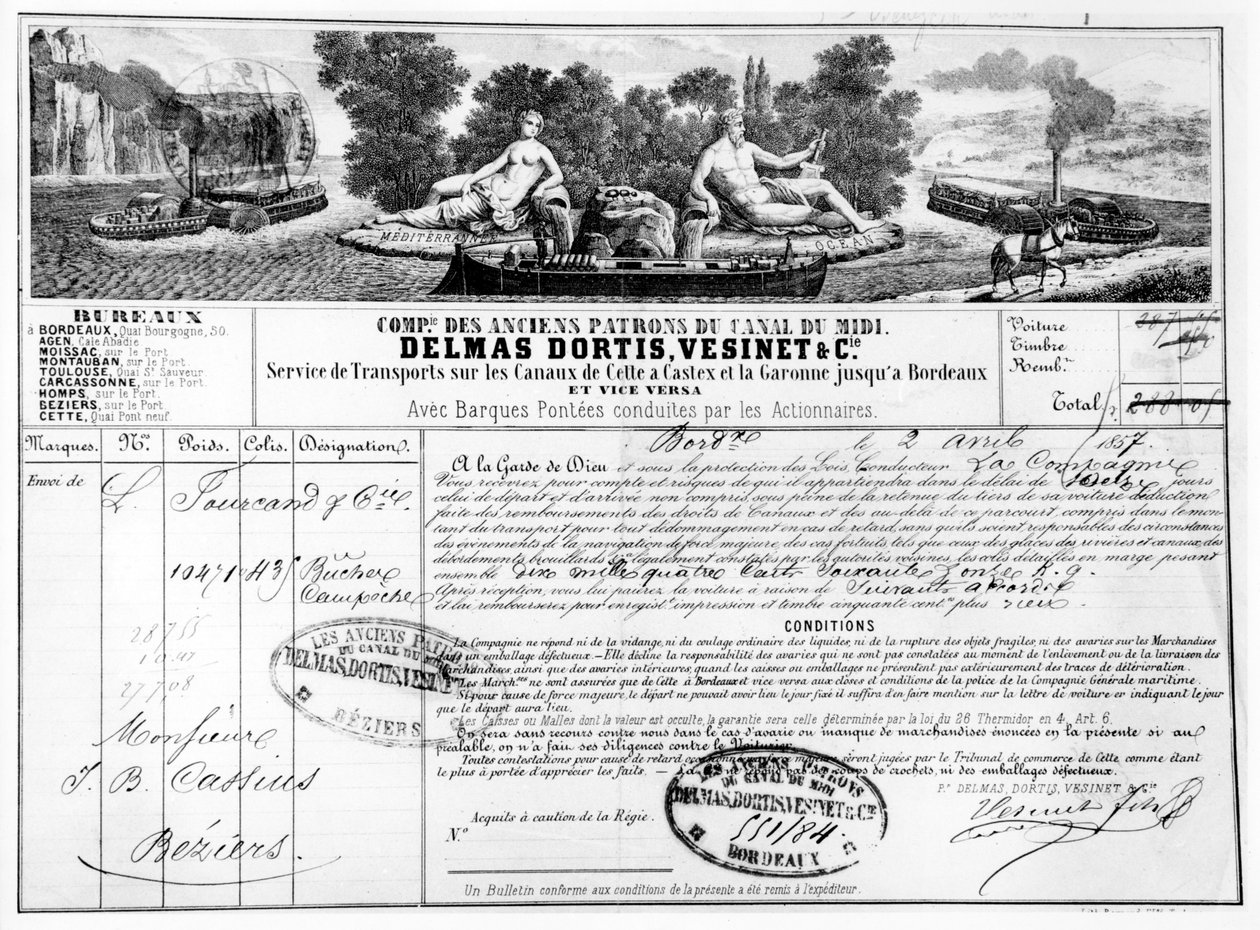 MÉDITERRANNÉE
OCÉAN
BUREAUX
à BORDEAUX, Quai Bourgogne, 50.
AGEN, Cale Abadie
MOISSAC, sur le Port
MONTAUBAN, sur le Port.
TOULOUSE, Quai St Sauveur.
CARCASSONNE, sur le Port.
HOMPS, sur le Port.
BEZIERS, sur le Port.
CETTE, Quai Pont neuf.
COMPie DES ANCIENS PATRONS DU CANAL DU MIDI.
DELMAS DORTIS, VESINET & Cie
Service de Transports sur les Canaux de Cette a Castex et la Garonne jusqu'a Bordeaux
ET VICE VERSA
Avèc Barques Pontées conduites par les Actionnaires.
Voiture 287
Timbre
Remb.t
Total 288 05
Marques. Nos Poids. Colis. Désignation.
Envoi de
L. Fourcand & Cie.
10471 435 Bûches
Campêche
28755
27708
Monsieur
J. B. Cassius
Béziers.
Bordx le 2 avril 1857.
A la Garde de Dieu et sous la protection des Lois, Conducteur La Compagnie
Vous recevrez pour compte et risques de qui il appartiendra dans le délai de jours
celui de départ et d'arrivée non compris, sous peine de la retenue du tiers de sa voiture déduction
faite des remboursements des droits de Canaux et des au-delà de ce parcourt, compris dans le mon-
tant du transport, pour tout dédommagement en cas de retard, sans qu'ils soient responsables des circonstances
des évènements de la navigation de force majeure, des cas fortuits tels que ceux des glaces des rivières et canaux, des
débordements, brouillards &a légalement constatés par les autorités voisines, les colis détaillés en marge pesant
ensemble dix mille quatre cent soixante onze K. g.
Après réception, vous lui paierez la voiture à raison de Suivant accord
et lui rembourserez pour enregistt impression et timbre cinquante centes plus rien.
CONDITIONS
La Compagnie ne répond ni de la vidange, ni du coulage ordinaire des liquides, ni de la rupture des objets fragiles, ni des avaries sur les Marchandises
dans un emballage défectueux. — Elle décline la responsabilité des avaries qui ne sont pas constatées au moment de l'enlèvement ou de la livraison des
Marchandises, ainsi que des avaries intérieures, quand les caisses ou emballages ne présentent pas extérieurement des traces de détérioration.
Les Marchses ne sont assurées que de Cette à Bordeaux et vice versa aux closes et conditions de la police de la Compagnie Générale maritime.
Si pour cause de force majeure, le départ ne pouvait avoir lieu le jour fixé il suffira d'en faire mention sur la lettre de voiture en indiquant le jour
que le départ aura lieu.
Les Caisses ou Malles dont la valeur est occulte, la garantie sera celle déterminée par la loi du 26 Thermidor en 4, Art. 6.
On sera sans recours contre nous dans le cas d'avarie ou manque de marchandises énoncées en la présente si au
préalable, on n'a fait ses diligences contre le Voiturier.
Toutes contestations pour cause de retard seront jugées par le Tribunal de commerce de Cette comme étant
le plus à portée d'apprécier les faits. — La ne répond pas de coups de crochets, ni des emballages défectueux.
Pr DELMAS, DORTIS, VESINET & Cie
Vesinet
Acquits à caution de la Régie.
No
Un Bulletin conforme aux conditions de la présente a été remis à l'expéditeur.
LES ANCIENS PATRO
DU CANAL DU MIDI
DELMAS, DORTIS, VESINET
BÉZIERS
LES ANCIENS PATRONS
DU CANAL DU MIDI
DELMAS, DORTIS, VESINET & Cie
551/84.
BORDEAUX